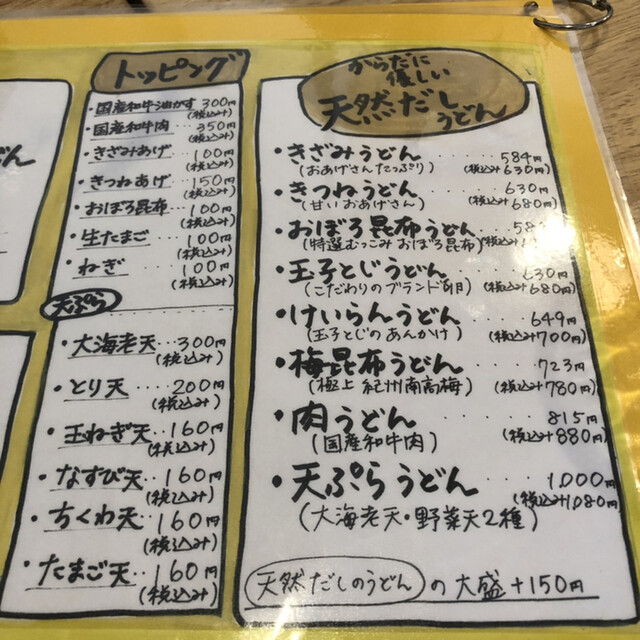 トッピング
・国産和牛油かす 300円
(税込み)
・国産和牛肉 350円
(税込み)
・きざみあげ 100円
(税込み)
・きつねあげ 150円
(税込み)
・おぼろ昆布 100円
(税込み)
・生たまご 100円
(税込み)
・ねぎ 100円
(税込み)
天ぷら
・大海老天 300円
(税込み)
・とり天 200円
(税込み)
・玉ねぎ天 160円
(税込み)
・なすび天 160円
(税込み)
・ちくわ天 160円
(税込み)
・たまご天 160円
(税込み)
からだに
優しい
天然だし
うどん
・きざみうどん 584円
(おあげさんたっぷり) (税込み630円)
・きつねうどん 630円
(甘いおあげさん) (税込み680円)
・おぼろ昆布うどん
(特選むっこみおぼろ昆布)
・玉子とじうどん 630円
(こだわりのブランド卵) (税込み680円)
・けいらんうどん 649円
(玉子とじのあんかけ) (税込み700円)
・梅昆布うどん 723円
(極上紀州南高梅) (税込み780円)
・肉うどん 815円
(国産和牛肉) (税込み880円)
・天ぷらうどん 1,000円
(税込み1,080円)
(大海老天・野菜天2種)
天然だしのうどん の大盛+150円
どん